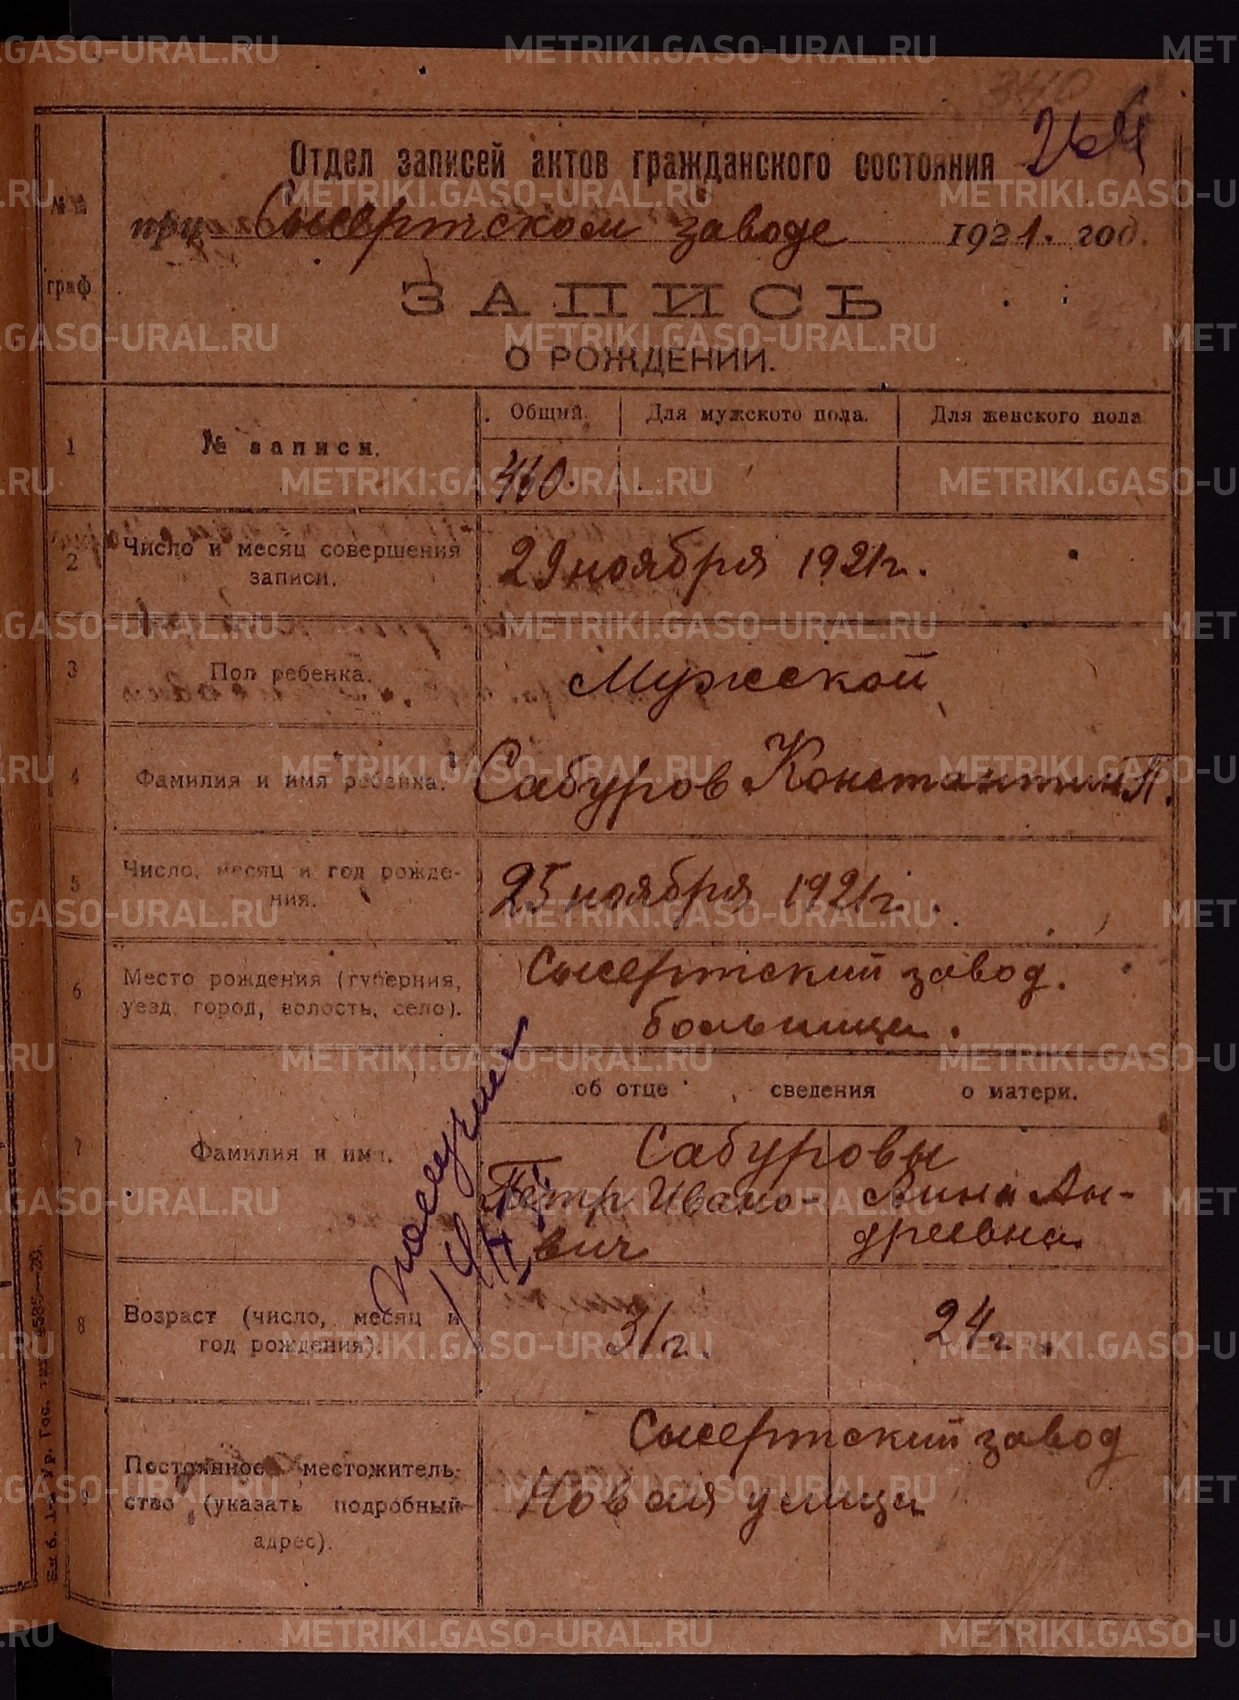 340
264
Отдел записей актов гражданского состояния
при Сысертском заводе 1921. год.
№№ граф.
ЗАПИСЬ
О РОЖДЕНИИ.
1 № записи. Общий. Для мужского пола. Для женского пола
460.
2 Число и месяц совершения записи. 29 ноября 1921 г.
3 Пол ребенка. Мужской
4 Фамилия и имя ребенка. Сабуров Константин П.
5 Число, месяц и год рожде-
ния. 25 ноября 1921 г.
6 Место рождения (губерния, Сысертский завод.
уезд, город, волость, село). больница.
об отце сведения о матери.
7 Фамилия и имя. Сабуровы
Петр Ивано- Анна Ан-
вич дреевна
8 Возраст (число, месяц и
год рождения). 31 г. 24 г.
Постоянное местожитель- Сысертский завод
ство (указать подробный Новая улица
адрес).
METRIKI.GASO-URAL.RU